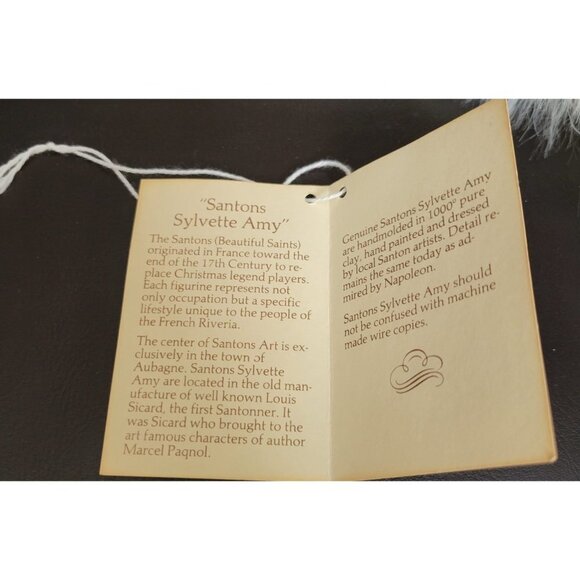 "Santons
Sylvette Amy"
The Santons (Beautiful Saints)
originated in France toward the
end of the 17th Century to re-
place Christmas legend players.
Each figurine represents not
only occupation but a specific
lifestyle unique to the people of
the French Riveria.
The center of Santons Art is ex-
clusively in the town of
Aubagne. Santons Sylvette
Amy are located in the old man-
ufacture of well known Louis
Sicard, the first Santonner. It
was Sicard who brought to the
art famous characters of author
Marcel Paqnol.
Genuine Santons Sylvette Amy
are handmolded in 1000° pure
clay, hand painted and dressed
by local Santon artists. Detail re-
mains the same today as ad-
mired by Napoleon.
Santons Sylvette Amy should
not be confused with machine
made wire copies.